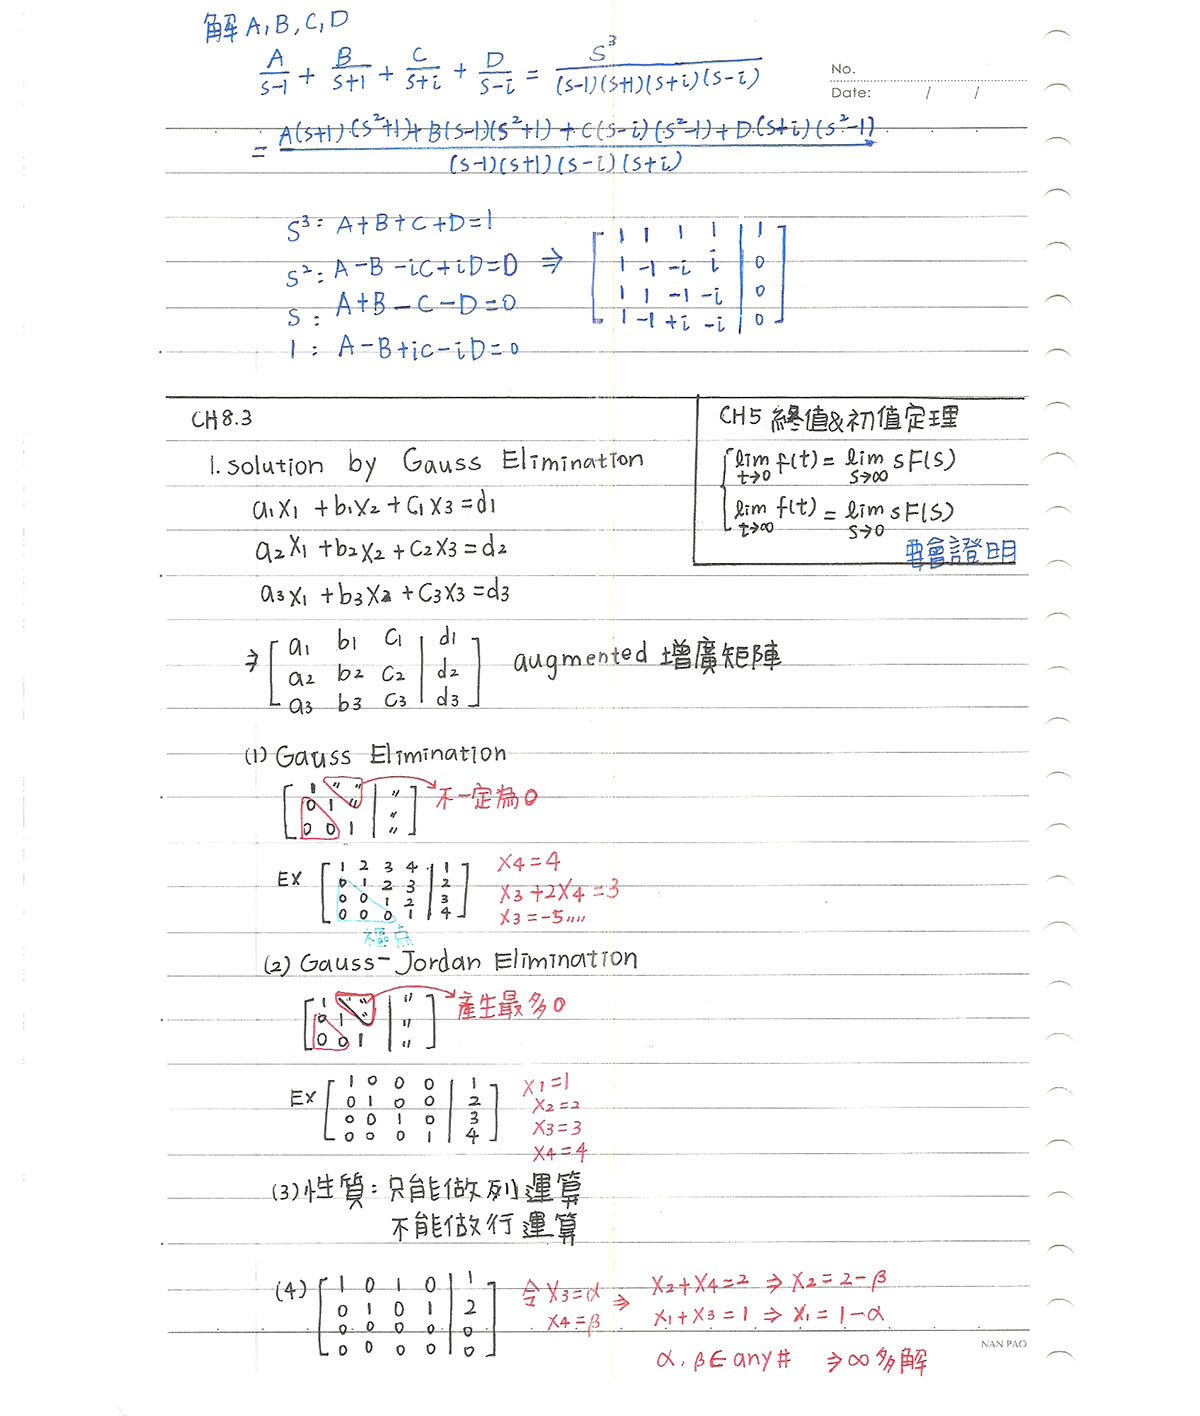 解 A, B, C, D
A/(s-1) + B/(s+1) + C/(s+i) + D/(s-i) = s³/((s-1)(s+1)(s+i)(s-i))
No.
Date: / /
= (A(s+1)(s²+1)+B(s-1)(s²+1)+C(s-i)(s²-1)+D(s+i)(s²-1))/((s-1)(s+1)(s-i)(s+i))
s³: A+B+C+D=1
s²: A-B-iC+iD=0 ⇒
s: A+B-C-D=0
1: A-B+iC-iD=0
[1 1 1 1 | 1]
[1 -1 -i i | 0]
[1 1 -1 -i | 0]
[1 -1 +i -i | 0]
CH8.3
1. solution by Gauss Elimination
a₁x₁+b₁x₂+c₁x₃=d₁
a₂x₁+b₂x₂+c₂x₃=d₂
a₃x₁+b₃x₂+c₃x₃=d₃
CH5 終值&初值定理
lim t→0 f(t) = lim s→∞ sF(s)
lim t→∞ f(t) = lim s→0 sF(s)
要會證明
⇒ [a₁ b₁ c₁ | d₁]
[a₂ b₂ c₂ | d₂]
[a₃ b₃ c₃ | d₃]
augmented 增廣矩陣
(1) Gauss Elimination
[1 " " | "]
[0 1 " | "]
[0 0 1 | "]
不一定為0
EX [1 2 3 4 | 1]
[0 1 2 3 | 2]
[0 0 1 2 | 3]
[0 0 0 1 | 4]
樞点
x₄=4
x₃+2x₄=3
x₃=-5,,,,
(2) Gauss-Jordan Elimination
[1 " " | "]
[0 1 " | "]
[0 0 1 | "]
產生最多0
EX [1 0 0 0 | 1]
[0 1 0 0 | 2]
[0 0 1 0 | 3]
[0 0 0 1 | 4]
x₁=1
x₂=2
x₃=3
x₄=4
(3) 性質: 只能做列運算
不能做行運算
(4) [1 0 1 0 | 1]
[0 1 0 1 | 2]
[0 0 0 0 | 0]
[0 0 0 0 | 0]
令 x₃=α
x₄=β
⇒ x₂+x₄=2 ⇒ x₂=2-β
x₁+x₃=1 ⇒ x₁=1-α
α, β∈any# ⇒∞多解
NAN PAO